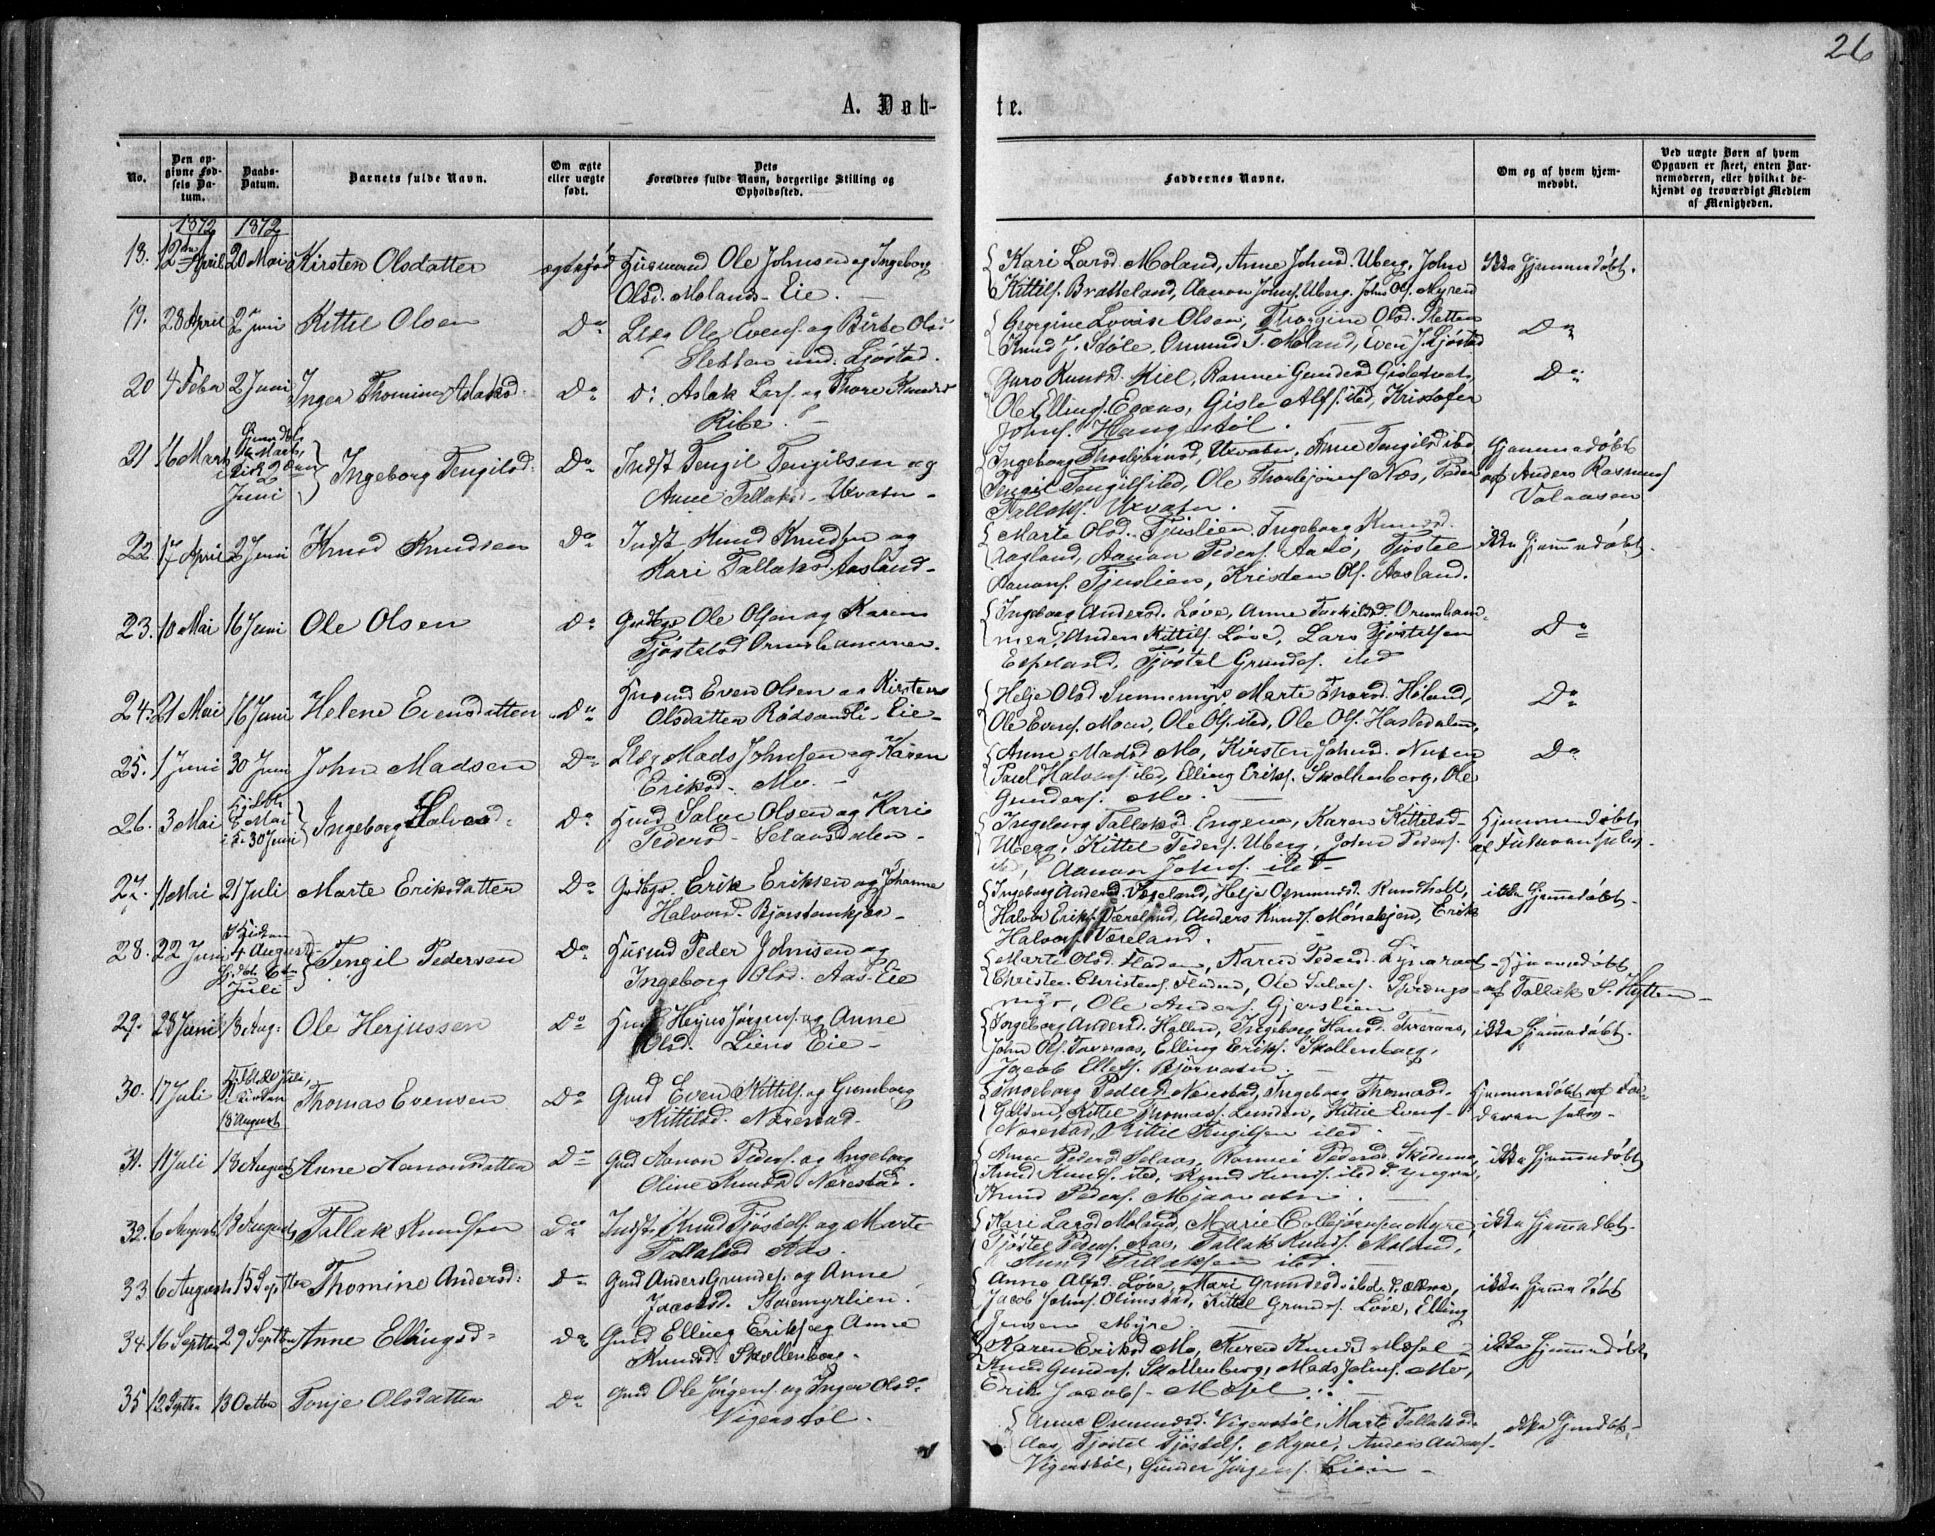 26
A. Døb-
te.
No.
Den op-
givne Fød-
sels Da-
tum.
Daabs-
Datum.
Barnets fulde Navn.
Om ægte
eller uægte
født.
Dets
Forældres fulde Navn, borgerlige Stilling og
Opholdssted.
Faddernes Navne.
Om og af hvem hjem-
medøbt.
Ved uægte Børn af hvem
Opgaven er skeet, enten Bar-
nemoderen, eller hvilket be-
kjendt og troværdigt Medlem
af Menigheden.
1872 1872
18. 12te April 20 Mai Kirsten Olsdatter ægtefød Husmand Ole Johnsen og Ingeborg
Olsd. Molands-Eie.
Kari Larsd. Moland, Anne Johnsd. Uberg, John
Kittilf. Bratteland, Aanon Johnf. Uberg. John Olf. Myrene
Ikke hjemmedøbt.
19. 28 April 2 Juni Kittel Olsen Do Ole Evenf. og Birte Olsd
Sletten und. Ljøstad.
Georgine Lovise Olsen, Thorgine Olsd. Sletten
Knud J. Støle, Osmund T. Moland, Even J. Ljøstad
Do
20 4 Febr 2 Juni Inger Thomine Aslaksd. Do Do Aslak Larf. og Thore Knudsd
Ribe.
Guro Knudsd. Kiel, Rannei Gundersd
Ole Ellingf. Espaas, Gisle Alff. ibd, Kristofer
Johnf. Haugestøl.
Do
21 16 Marts Hjemdbt.
Marts,
i Kirk
2
Juni
Ingeborg Tengilsd. Do Indst Tengil Tengilsen og
Anne Tallaksd. Uxvatn
Ingeborg Thorbjørnsd, Uxvatn, Anne Tengilsd ibd,
Tengil Tengilf ibd, Ole Thorbjørnf Næs, Peder
Tallakf. Uxvatn.
Hjemmedøbt
af Anders Rasmusf
Valaasen
22. 17 April 2 Juni Knud Knudsen Do Indst Knud Knudsen og
Kari Tallaksd. Aasland.
Marte Olsd. Tjuslien, Ingeborg Knudsd.
Aasland, Aanon Pederf. Tjøstel
Aanonf. Tjuslien, Kristen Olf. Aasland.
ikke hjemmedøbt.
23. 10 Mai 16 Juni Ole Olsen Do Gaardbgr Ole Olsen og Karen
Tjøstelsd Ormshammeren.
Ingeborg Andersd. Løve, Anne Torkildsd. Ormsham-
meren, Anders Kittilf. Løve, Lars Tjøstelsen
Espeland, Tjøstel Grundef. ibd
Do
24. 21 Mai 16 Juni Helene Evensdatter Do Husmd Even Olsen og Kirsten
Olsdatter Rødsandli-Eie
Helje Olsd Sunnemyr Marte Thorsd. Høland,
Ole Evenf. Moen, Ole Olf. ibd, Ole Olf. Hasledalen,
Do
25. 1 Juni 30 Juni John Madsen Do Mads Johnsen og Karen
Eriksd. Mo.
Anne Madsd Mo, Kirsten Johnsd.
Paul Halvorf ibd, Elling Erikf. Skollenberg, Ole
Gunderf. Mo.
Do
26. 3 Mai Hjdbt
Mai
i K 30 Juni
Ingeborg Halvorsd. Do Salve Olsen og Kari
Pedersd.
Ingeborg Tallaksd Engene, Karen Kittelsd
Uberg, Kittel Pederf. Uberg, John Pederf.
ibd, Aanon Johnf. ibd.
Hjemmedøbt
af
27. 11 Mai 21 Juli Marte Eriksdatter Do Gaardbgr. Erik Eriksen og Johanne
Halvorsd.
Ingeborg Andersd. Væreland, Helje Osmundsd. Rundholt,
Halvor Erikf. Væreland, Anders Knudf. Erik
Halvorf. Væreland.
ikke hjemmedøbt.
28. 22 Juni I Kirken
4 August
Hjdbt
Juli
Tengil Pedersen Do Husmd Peder Johnsen og
Ingeborg Olsd. Aas-Eie
Marte Olsd. Fladen, Karen Pedersd.
Christen Christenf. Ole Salvef. Sprængs-
myr, Ole Anderf. Gjerslien
Hjemmedøbt
af Tallak S. Hytten
29. 28 Juni 18 Aug: Ole Herjussen Do Herjus Jørgenf. og Anne
Olsd. Liens Eie
Ingeborg Andersd. Hallen, Ingeborg Hansd. Tveraas,
John Olf. Tveraas, Elling Erikf. Skollenberg,
Jacob Ellefs. Bjørvatn.
ikke hjemmedøbt.
30. 17 Juli Juli,
i Kirken
18 August
Thomas Evensen Do Gmd Even Kittilf. og Gunborg
Kittilsd. Nærestad.
Ingeborg Pedersd Nærestad, Ingeborg Thomasd.
Kittel Thomasf. Lunden, Kittil Evenf.
Nærestad, Kittil Tengilsen ibd.
Hjemmedøbt af Fa-
deren selv.
31. 11 Juli 18 August Anne Aanonsdatter Do Gmd Aanon Pederf. og Ingeborg
Oline Knudsd Nærestad.
Anne Pedersd Selaas, Rannei Pedersd.
Knud Knudf. ibd,
Knud Pederf. Mjaavatn.
ikke hjemmedøbt
32. 6 August 18 August Tallak Knudsen Do Indst. Knud Tjøstelf. og Marte
Tallaksd Aas.
Kari Larsd Moland, Marie Myre,
Tjøstel Pederf. Aas, Tallak Knudf. Moland,
Knud Tallaksen ibd.
ikke hjemmedøbt.
33 6 August 15 Septbr Thomine Andersd: Do Gmd Anders Grundef. og Anne
Jacobsd. Staremyrlien.
Anne Alfsd. Løve, Mari Grundesd ibd,
Jacob Johnf. Kittel Grundf. Løve, Elling
Jensen Myre.
ikke hjemmedøbt
34. 16 Septbr 29 Septbr Anne Ellingsd. Do Gmd Elling Erikf og Anne
Knudsd. Skollenberg.
Karen Eriksd Mo, Karen Knudsd Mæsel
Knud Gunderf. Skollenberg, Mads Johnf. Mo,
Erik Jacobf. Mæsel.
ikke hjemmedøbt.
35 12 Septbr 13 Octbr Tonje Olsdatter Do Gmd Ole Jørgenf. og Inger Olsd.
Vigenstøl.
Anne Osmundsd. Vigenstøl, Marte Tallaksd.
Aas, Tjøstel Tjøstelf. Myre, Anders Anderf.
Vigenstøl, Gunder Jørgenf. Lien
ikke hjemdøbt.